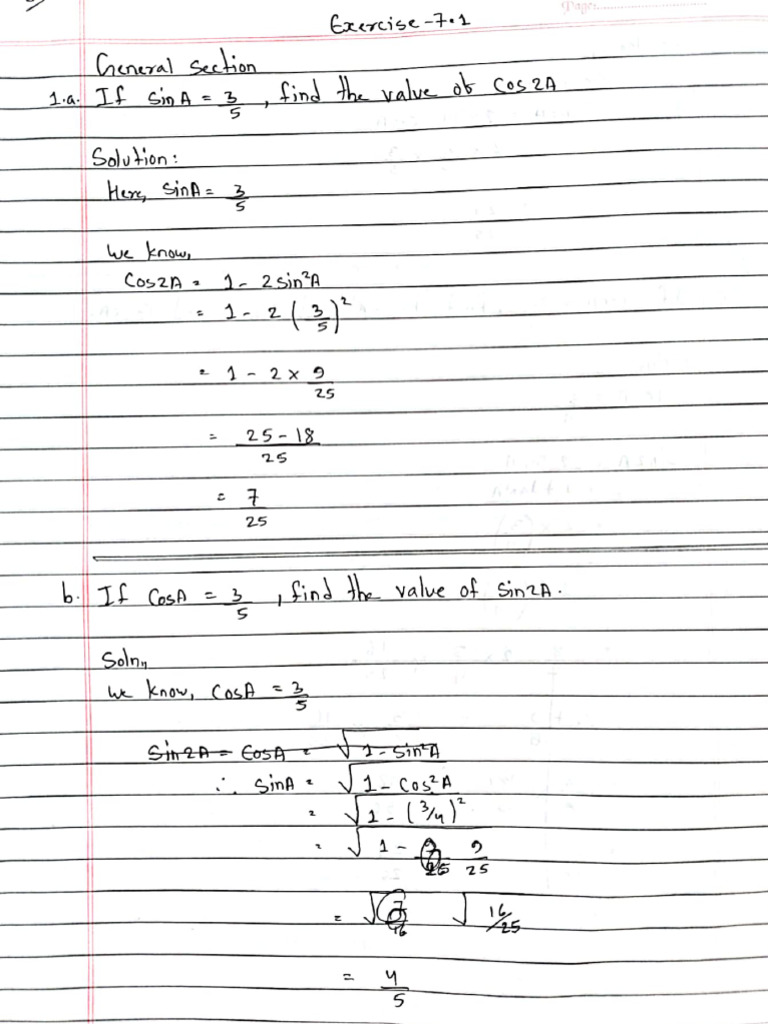 Page:
Exercise-7.1
General section
1.a. If sin A = 3/5, find the value of Cos2A
Solution:
Here, sinA = 3/5
We know,
Cos2A = 1 - 2sin²A
= 1 - 2 (3/5)²
= 1 - 2 × 9/25
= 25-18/25
= 7/25
b. If CosA = 3/5, find the value of Sin2A.
Soln,,
We know, CosA = 3/5
Sin2A = CosA = √1-Sin²A
∴ SinA = √1-Cos²A
= √1-(3/4)²
= √1- 9/25 9/25
= √7/16 √16/25
= 4/5